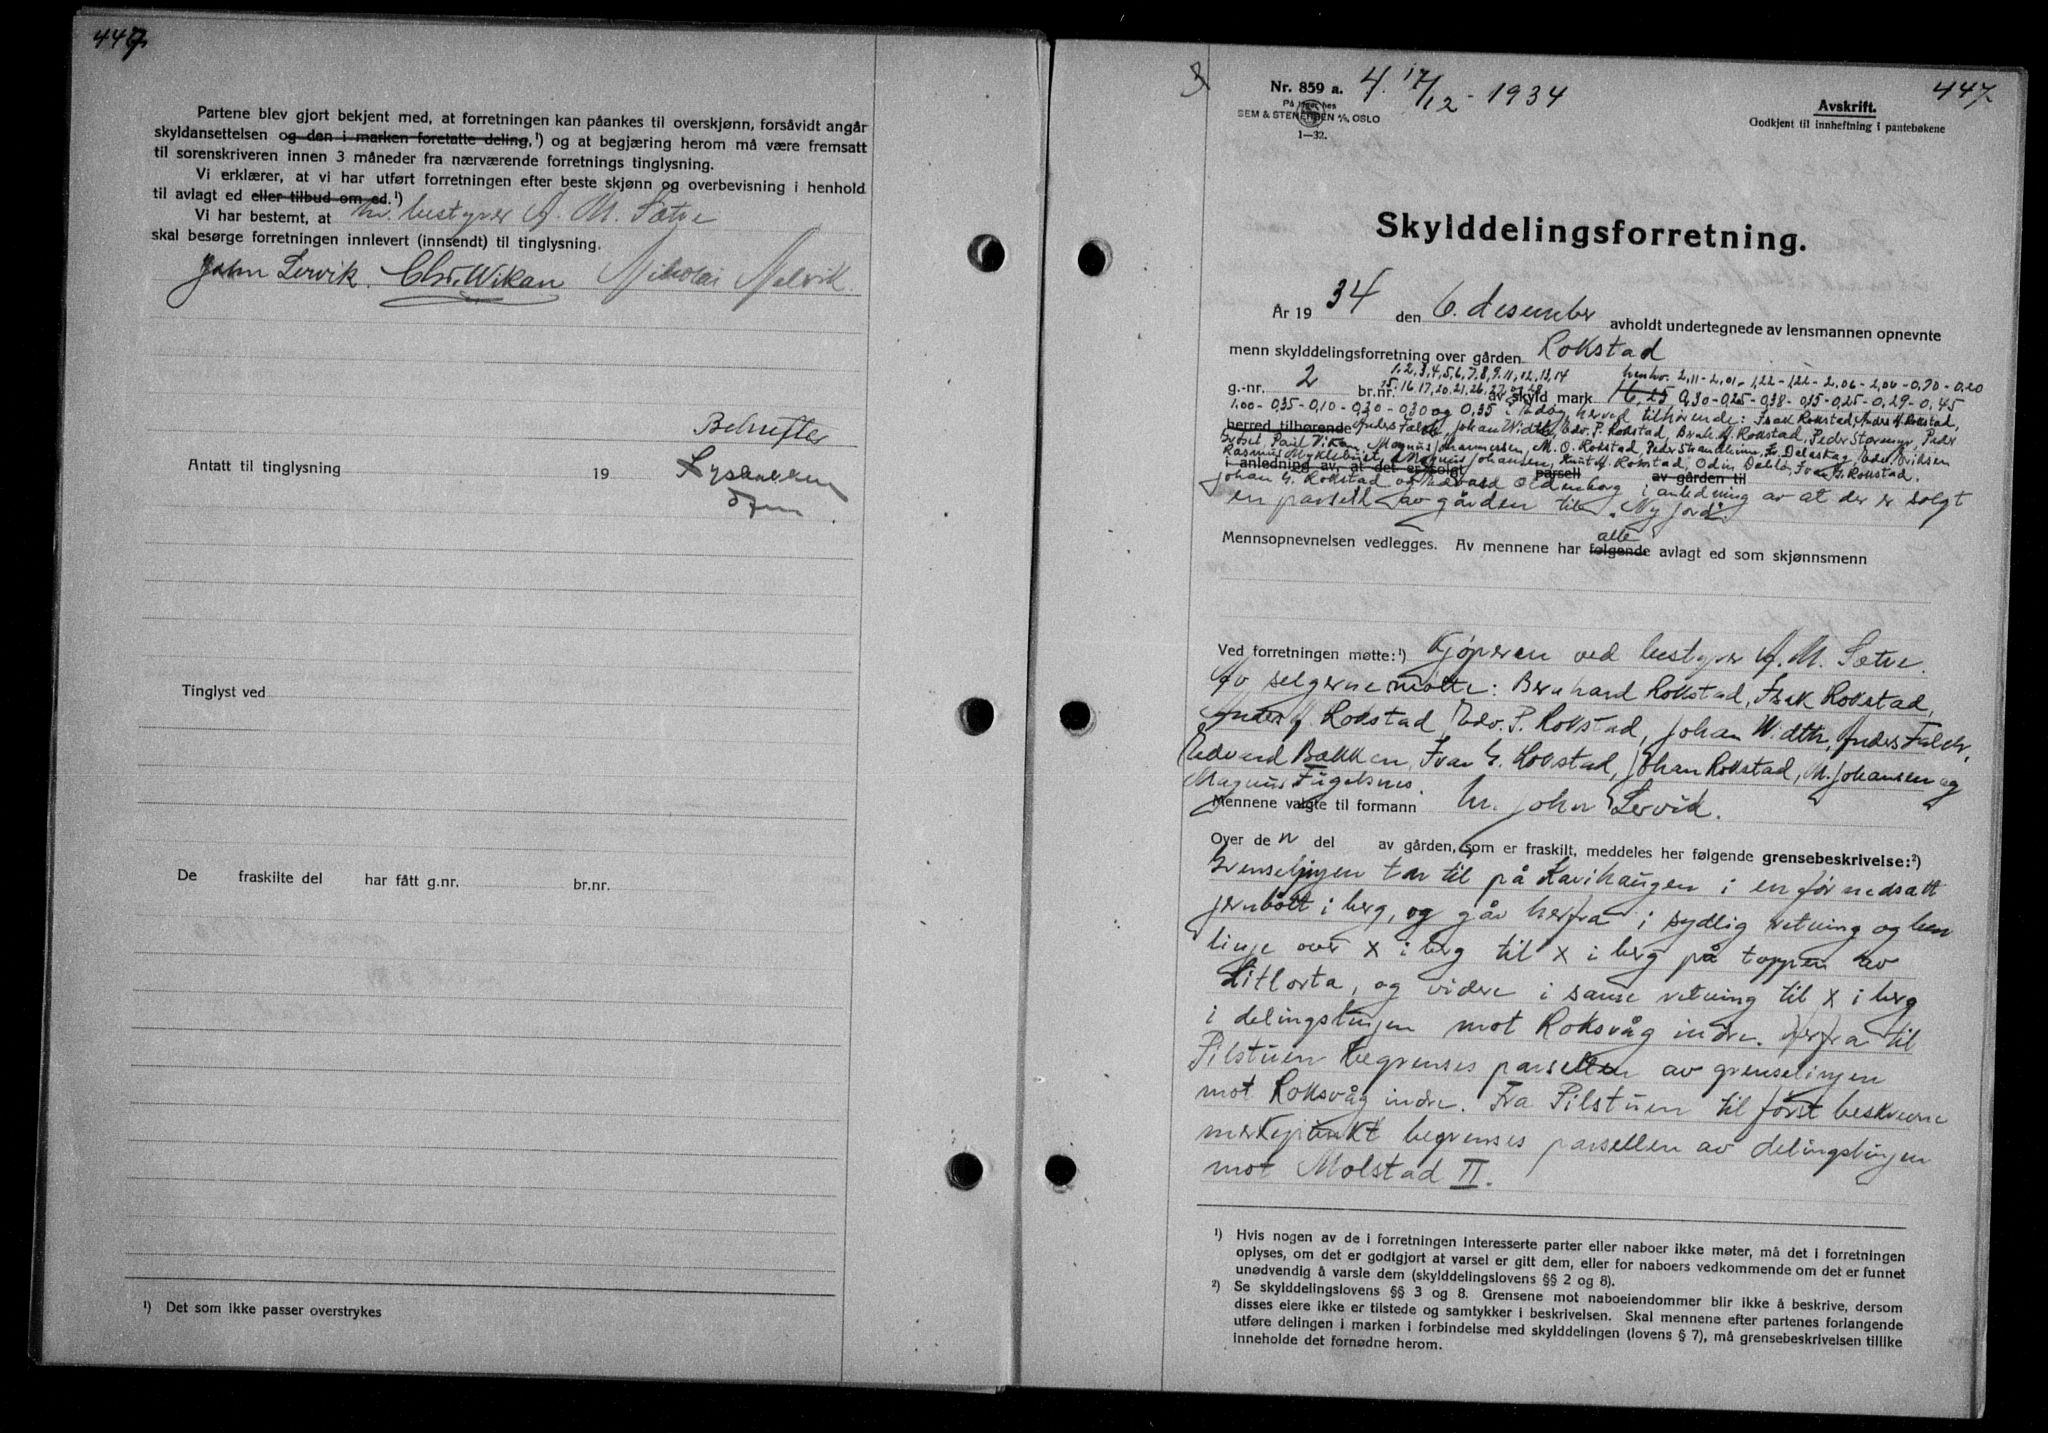 447.
Partene blev gjort bekjent med, at forretningen kan påankes til overskjønn, forsåvidt angår
skyldansettelsen og den i marken foretatte deling,¹) og at begjæring herom må være fremsatt
til sorenskriveren innen 3 måneder fra nærværende forretnings tinglysning.
Vi erklærer, at vi har utført forretningen efter beste skjønn og overbevisning i henhold
til avlagt ed eller tilbud om ed.¹)
Vi har bestemt, at hr. bestyrer A. M. Sætre
skal besørge forretningen innlevert (innsendt) til tinglysning.
John Lervik. Chr. Wikan Nikolai Malvik.
Bekrefter
Antatt til tinglysning 19
Tinglyst ved
De fraskilte del har fått g.nr. br.nr.
¹) Det som ikke passer overstrykes
Nr. 859 a. 4. 17/12 - 1934 447.
På lager hos
SEM & STENERSEN A/S, OSLO
1—32.
Avskrift.
Godkjent til innheftning i pantebøkene
Skylddelingsforretning.
År 1934 den 6. desember avholdt undertegnede av lensmannen opnevnte
menn skylddelingsforretning over gården Rokstad
1, 2, 3, 4, 5, 6, 7, 8, 9, 11, 12, 13, 14 henhv. 2,11 - 2,01 - 1,22 - 1,22 - 2,06 - 2,00 - 0,70 - 0,20
g.-nr. 2 br.nr. 15, 16, 17, 20, 21, 26, 27 og 28 av skyld mark 16,25 0,30 - 0,25 - 0,38 - 0,15 - 0,25 - 0,29 - 0,45
1,00 - 0,35 - 0,10 - 0,30 - 0,30 og 0,35 i Edøy herred tilhørende: Isak Rokstad, Anders M. Rokstad,
herred tilhørende Anders Falch, Johan Width, Edv. P. Rokstad, Bernh. M. Rokstad, Peder Stormyr, Peder
Paul Vikan, Magnus Johannessen, M. O. Rokstad, Peder Strandheim, Edv. Eriksen
Rasmus Myklebust, Magnus Johansen, Knut M. Rokstad, Odin Dahlø, Ivar G. Rokstad.
i anledning av, at det er solgt parsell av gården til
Johan G. Rokstad og Edvard Oldenborg i anledning av at der er solgt
en parsell av gården til "Ny jord".
Mennsopnevnelsen vedlegges. Av mennene har følgende alle avlagt ed som skjønnsmenn
Ved forretningen møtte:¹) Kjøperen ved bestyrer A. M. Sætre.
Av selgerne møtte: Bernhard Rokstad, Isak Rokstad,
Anders M. Rokstad, Edv. P. Rokstad, Johan Width, Anders Falch,
Edvard Bakken, Ivar G. Rokstad, Johan Rokstad, M. Johansen og
Magnus Fugelsnes.
Mennene valgte til formann hr. John Lervik.
Over den del av gården, som er fraskilt, meddeles her følgende grensebeskrivelse:²)
Grenselinjen tar til på Kavihaugen i en før nedsatt
jernbolt i berg, og går herfra i sydlig retning og ben
linje over x i berg til x i berg på toppen av
Litlorta, og videre i samme retning til x i berg
i delingslinjen mot Roksvåg indre. Herfra til
Pilstuen begrenses parsellen av grenselinjen
mot Roksvåg indre. Fra Pilstuen til først beskrevne
merkepunkt begrenses parsellen av delingslinjen
mot Molstad II.
¹) Hvis nogen av de i forretningen interesserte parter eller naboer ikke møter, må det i forretningen
oplyses, om det er godtgjort at varsel er gitt dem, eller for naboers vedkommende om det er funnet
unødvendig å varsle dem (skylddelingslovens §§ 2 og 8).
²) Se skylddelingslovens §§ 3 og 8. Grensene mot naboeiendommer blir ikke å beskrive, dersom
disses eiere ikke er tilstede og samtykker i beskrivelsen. Skal mennene efter partenes forlangende
utføre delingen i marken i forbindelse med skylddelingen (lovens § 7), må grensebeskrivelsen tillike
inneholde det fornødne herom.